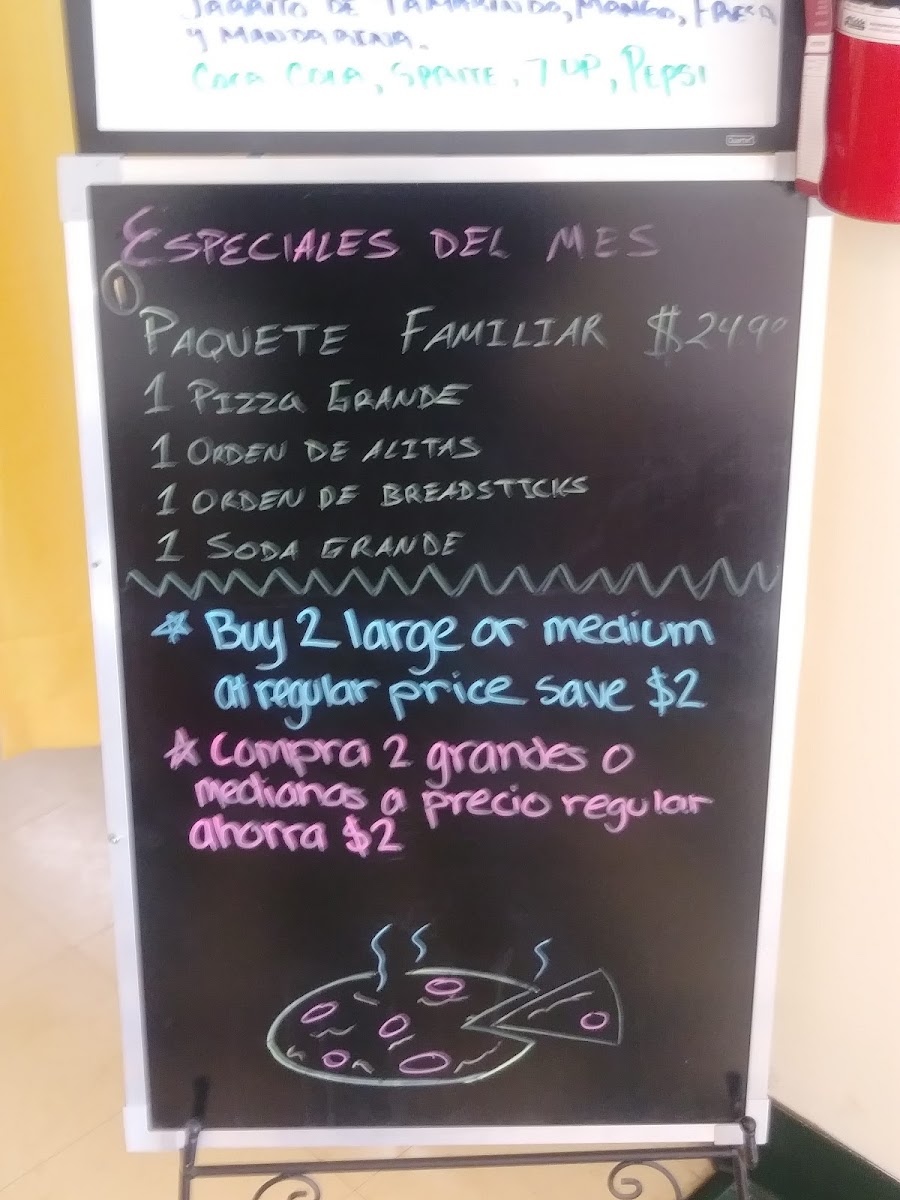 JARRITO DE TAMARINDO, MANGO, FRESA
Y MANDARINA.
COCA COLA, SPRITE, 7 UP, PEPSI
Quartet
ESPECIALES DEL MES
1
PAQUETE FAMILIAR $24.99
1 PIZZA GRANDE
1 ORDEN DE ALITAS
1 ORDEN DE BREADSTICKS
1 SODA GRANDE
* Buy 2 large or medium
at regular price save $2
* Compra 2 grandes o
medianas a precio regular
ahorra $2